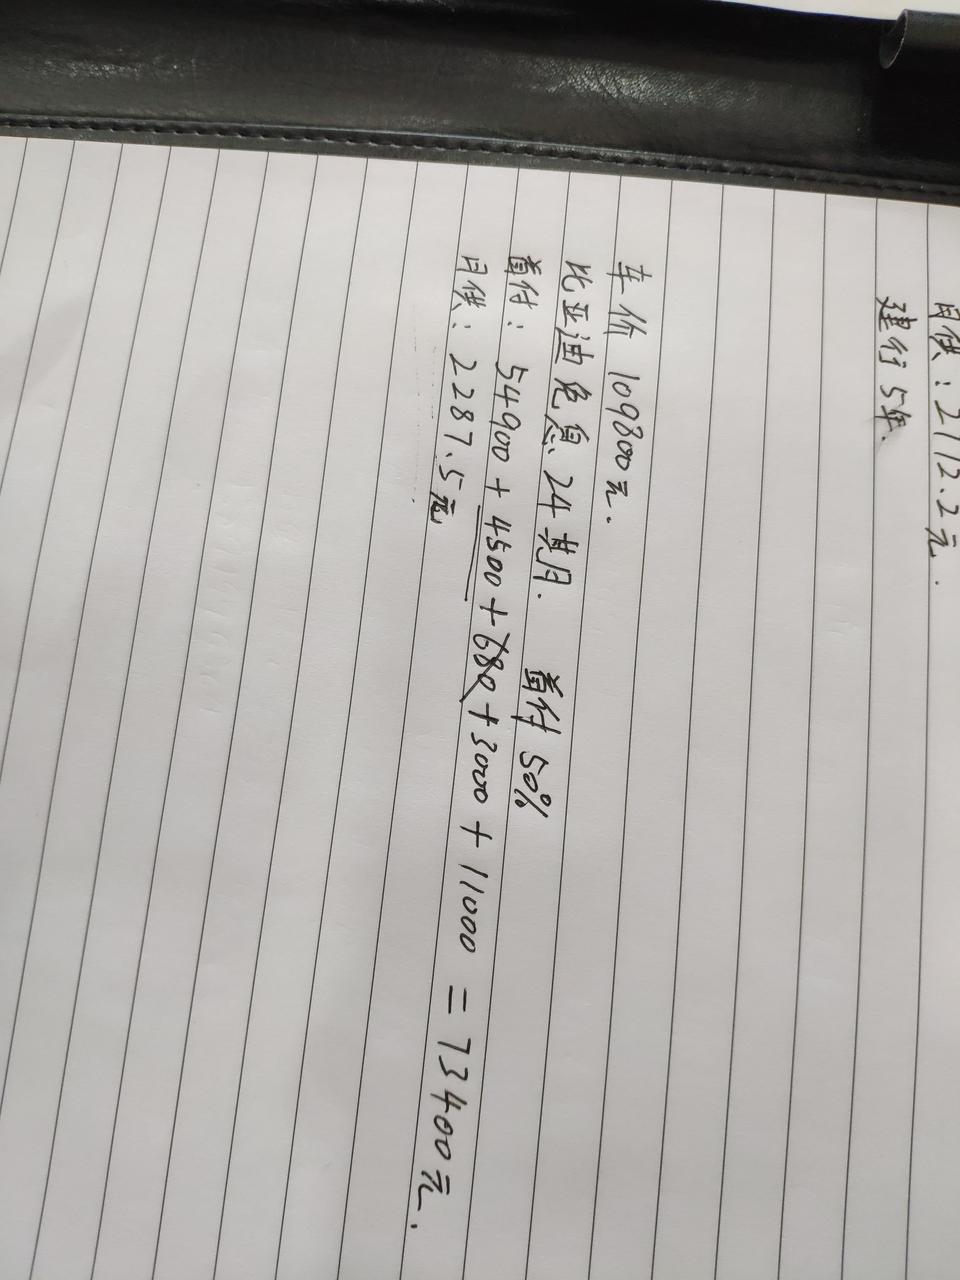 月供：2112.2元.
建行5年.
车价 109800元.
比亚迪免息24期. 首付50%
首付：54900+4500+680+3000+11000=73400元.
月供：2287.5元